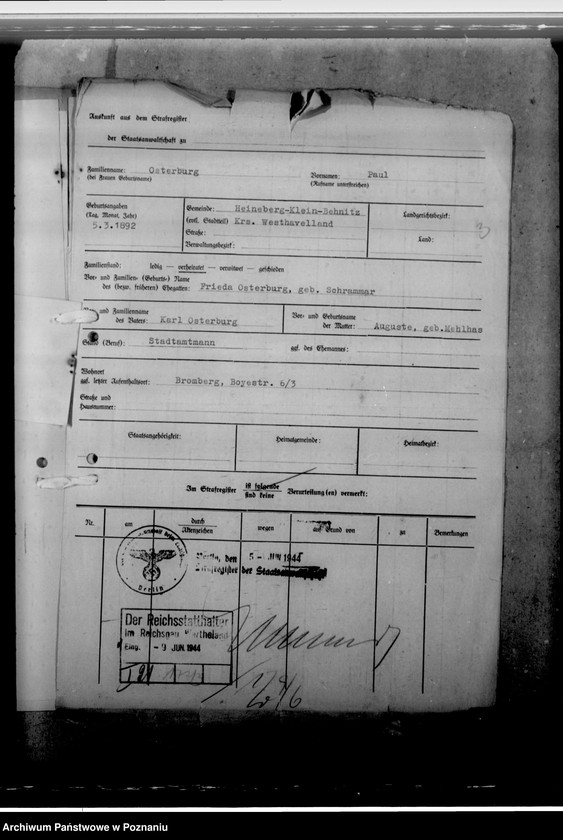 Auskunft aus dem Strafregister
der Staatsanwaltschaft zu
Familienname: Osterburg
(bei Frauen Geburtsname)
Vornamen: Paul
(Rufname unterstreichen)
Geburtsangaben
(Tag, Monat, Jahr)
5.3.1892
Gemeinde: Heineberg-Klein-Behnitz
(evtl. Stadtteil) Krs. Westhavelland
Straße:
Verwaltungsbezirk:
Landgerichtsbezirk:
Land:
3
Familienstand: ledig — verheiratet — verwitwet — geschieden
Vor- und Familien- (Geburts-) Name
des (bezw. früheren) Ehegatten: Frieda Osterburg, geb. Schrammar
und Familienname
des Vaters: Karl Osterburg
Vor- und Geburtsname
der Mutter: Auguste, geb.Mehlhas
(Beruf): Stadtamtmann
ggf. des Ehemannes:
Wohnort
ggf. letzter Aufenthaltsort: Bromberg, Boyestr. 6/3
Straße und
Hausnummer:
Staatsangehörigkeit:
Heimatgemeinde:
Heimatbezirk:
Im Strafregister ist folgende
sind keine Verurteilung(en) vermerkt:
Nr.
am
durch
Aktenzeichen
wegen
auf Grund von
zu
Bemerkungen
Berlin, den 5- JUN 1944
Strafregister der
Berlin
Der Reichsstatthalter
im Reichsgau Wartheland
Eing. - 9 JUN. 1944
Archiwum Państwowe w Poznaniu